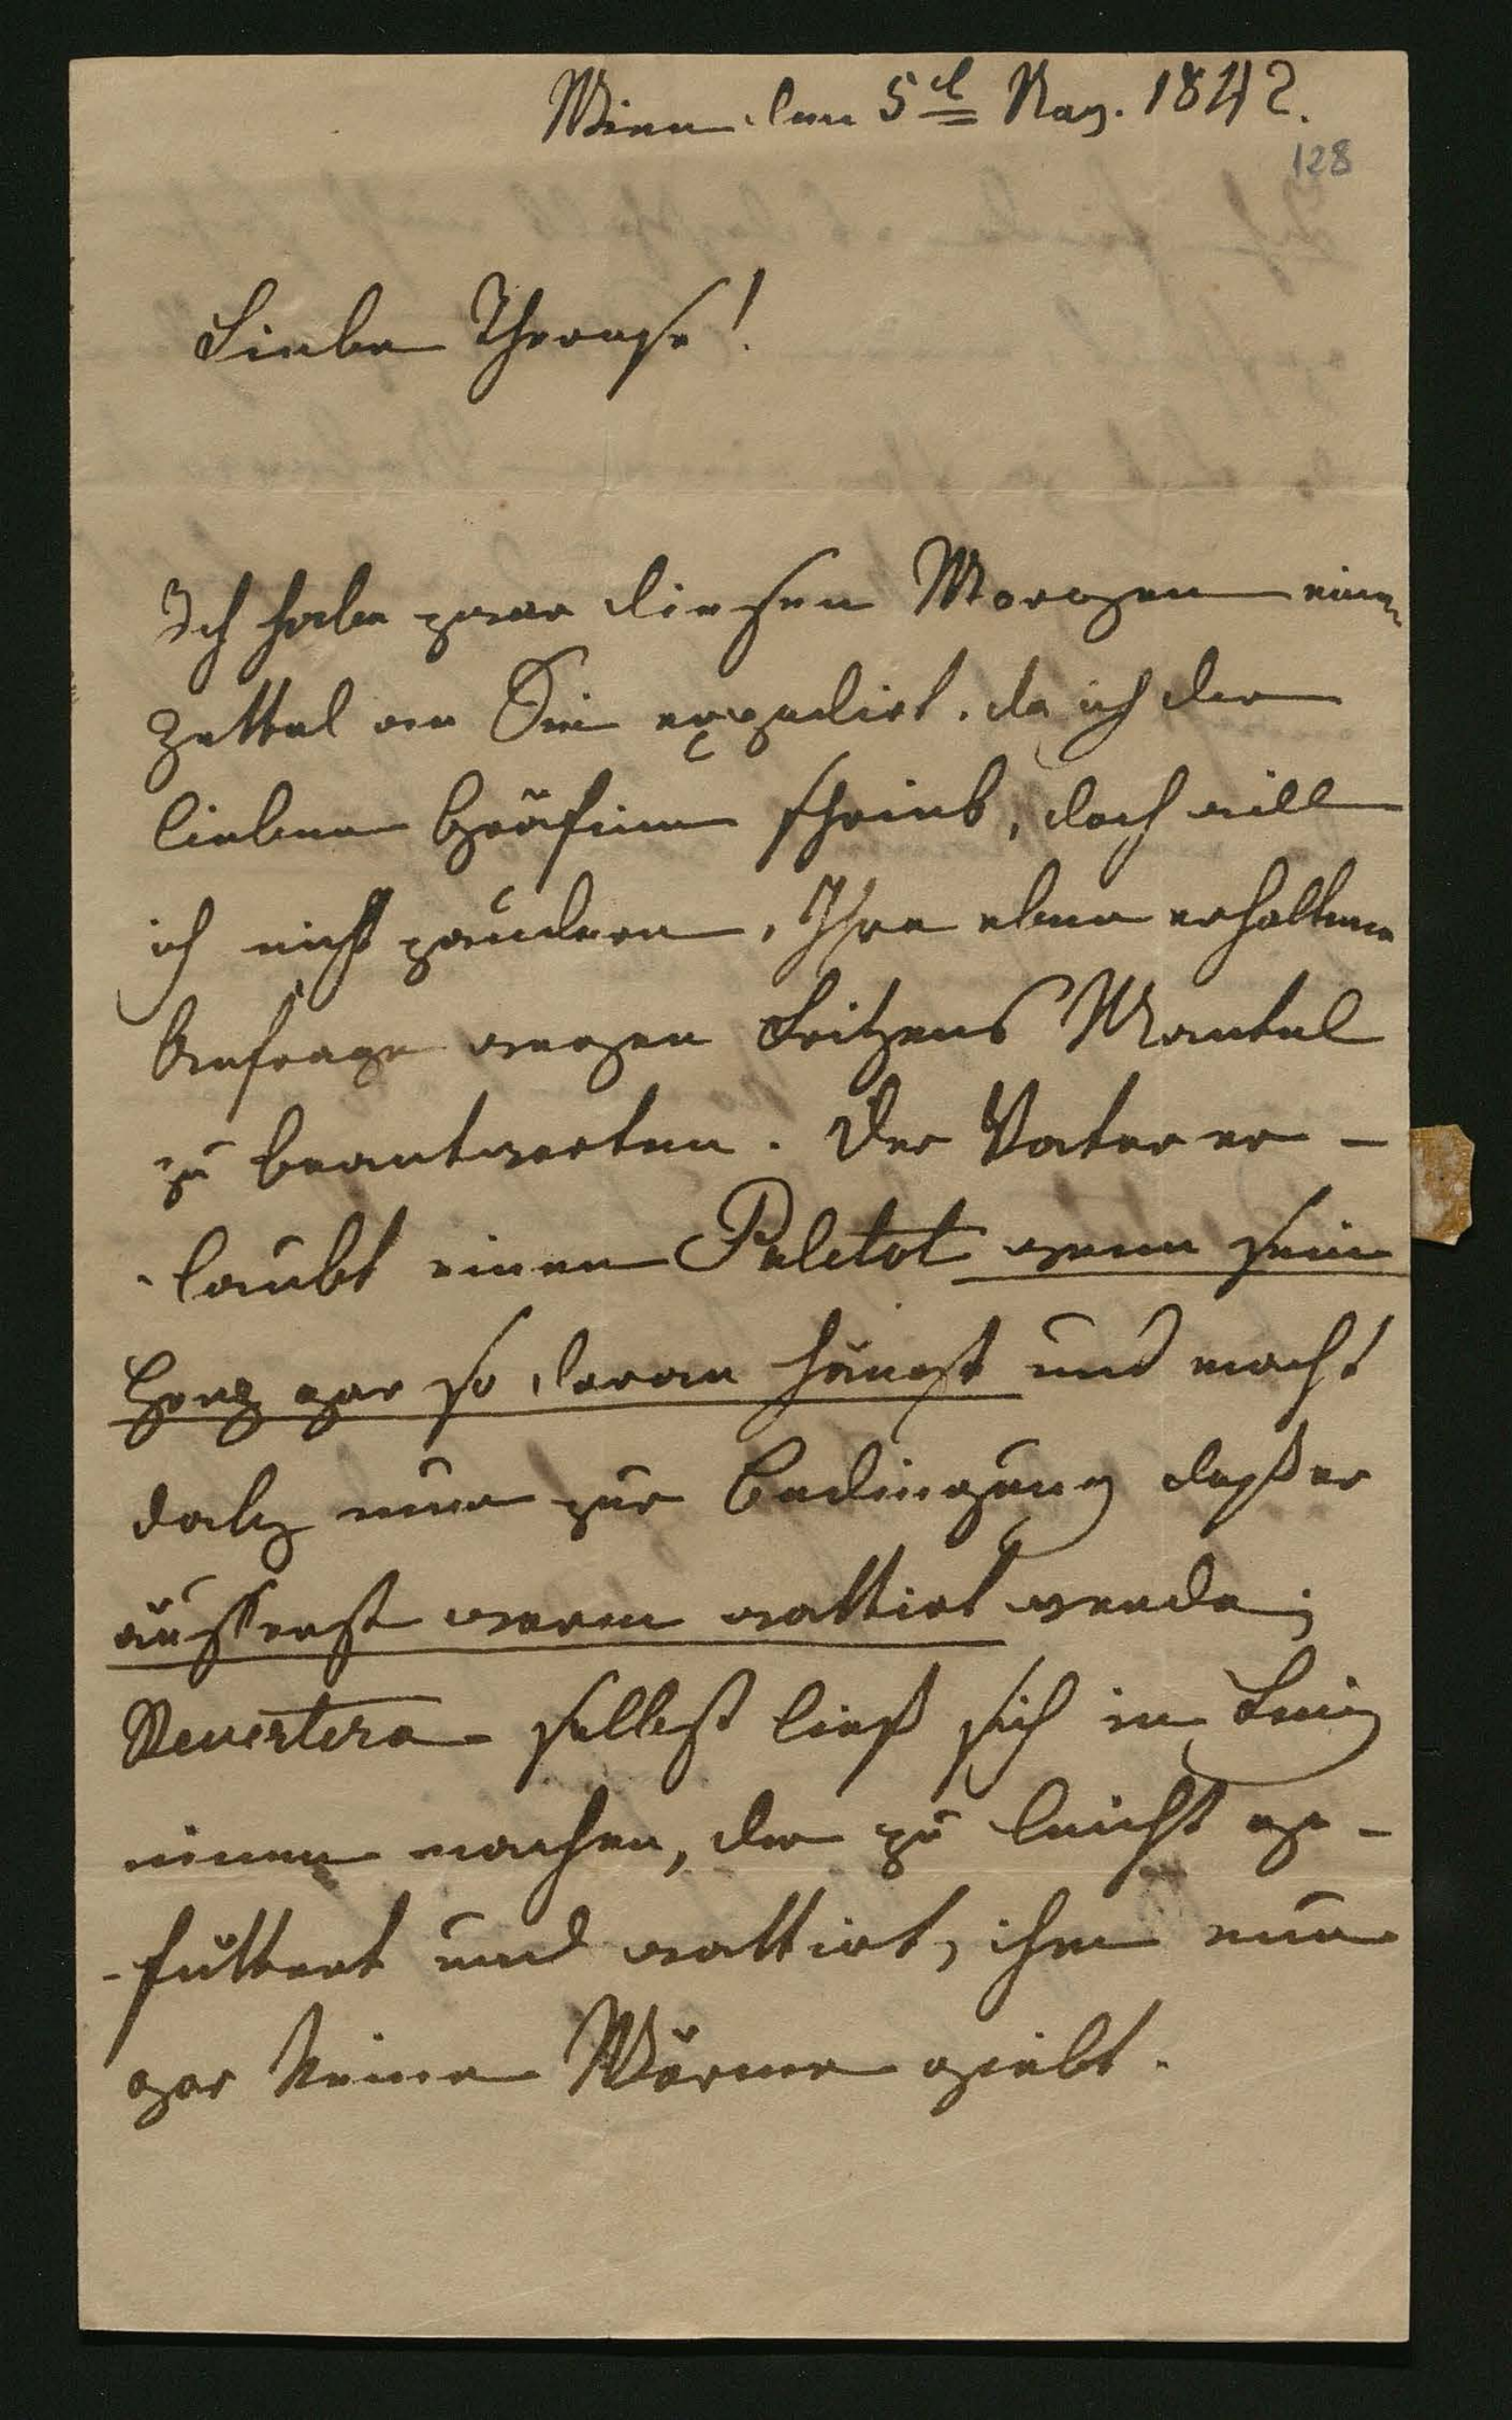 Wien den 5t Nov. 1842.
128
Liebe Therese!
Ich habe zwar diesen Morgen einen
Zettel an Sie expedirt, da ich der
lieben Gräfinn schrieb, doch will
ich nicht zaudern, Ihre eben erhaltene
Anfrage wegen Fritzens Mantel
zu beantworten. Der Vater er-
-laubt einen Paletot wenn sein
Herz gar so daran hängt und macht
dabey nur zur Bedingung daß er
äusserst warm wattirt werde;
Revertera selbst ließ sich in
einen machen, der zu leicht ge-
-füttert und wattirt, ihm nun
gar keine Wärme giebt.